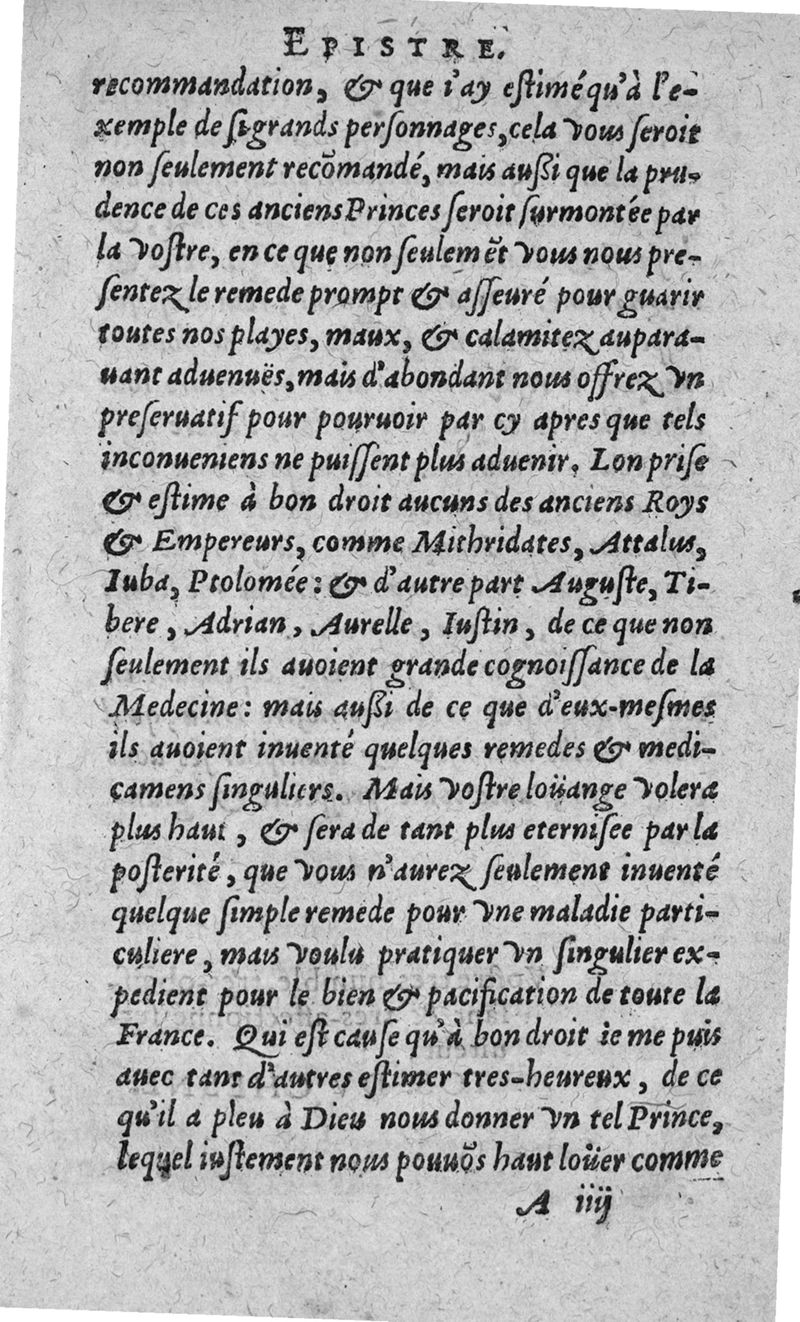 EPISTRE.
recommandation, & que i'ay estimé qu'à l'e-
xemple de si grands personnages, cela vous seroit
non seulement recõmandé, mais aussi que la pru-
dence de ces anciens Princes seroit surmontée par
la vostre, en ce que non seulemẽt vous nous pre-
sentez le remede prompt & asseuré pour guarir
toutes nos playes, maux, & calamitez aupara-
uant aduenuës, mais d'abondant nous offrez vn
preseruatif pour pouruoir par cy apres que tels
inconueniens ne puissent plus aduenir. Lon prise
& estime à bon droit aucuns des anciens Roys
& Empereurs, comme Mithridates, Attalus,
Iuba, Ptolomée: & d'autre part Auguste, Ti-
bere, Adrian, Aurelle, Iustin, de ce que non
seulement ils auoient grande cognoissance de la
Medecine: mais aussi de ce que d'eux-mesmes
ils auoient inuenté quelques remedes & medi-
camens singuliers. Mais vostre loüange volera
plus haut, & sera de tant plus eternisee par la
posterité, que vous n'aurez seulement inuenté
quelque simple remede pour vne maladie parti-
culiere, mais voulu pratiquer vn singulier ex-
pedient pour le bien & pacification de toute la
France. Qui est cause qu'à bon droit ie me puis
auec tant d'autres estimer tres-heureux, de ce
qu'il a pleu à Dieu nous donner vn tel Prince,
lequel iustement nous pouuõs haut loüer comme
A iiij